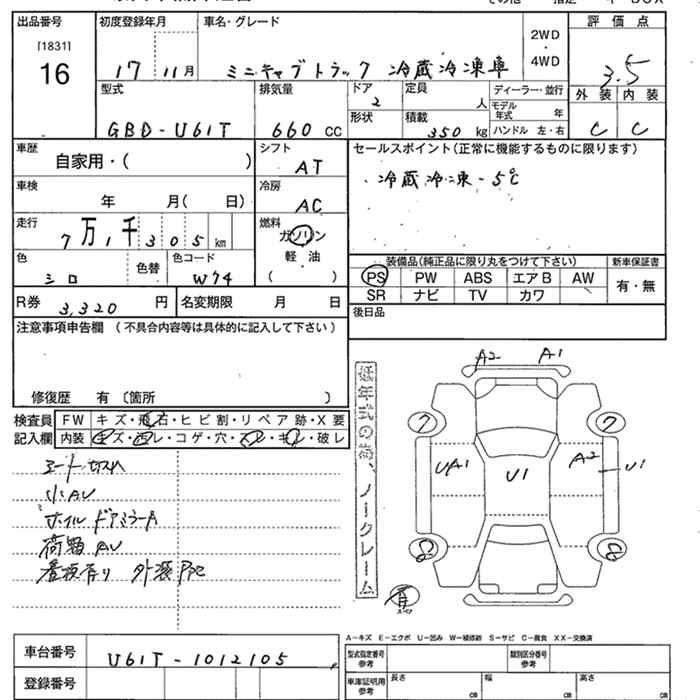 出品番号 初度登録年月 車名・グレード 評価点
[1831]
16 17 11月 ミニキャブトラック 冷蔵冷凍車 2WD・4WD 3.5
型式 排気量 ドア 2 定員 人 ディーラー・並行 外装 内装
形状 積載 350 kg モデル年式 年
GBD-U61T 660 CC ハンドル 左・右 C C
車歴 シフト セールスポイント(正常に機能するものに限ります)
自家用・( ) AT
冷蔵冷凍-5℃
車検 冷房
年 月( 日) AC
走行 燃料
7万1千305km ガソリン
軽油
( )
装備品(純正品に限り丸をつけて下さい) 新車保証書
色 色替 色コード PS PW ABS エアB AW 有・無
シロ W74 SR ナビ TV カワ
R券 3,320 円 名変期限 月 日 後日品
注意事項申告欄 (不具合内容等は具体的に記入して下さい)
修復歴 有 〔箇所 〕
検査員 FW キズ・飛石・ヒビ割・リペア跡・X要
記入欄 内装 キズ・汚レ・コゲ・穴・スレ・キレ・破レ
低年式の為、ノークレーム
A2 A1
7 7
UA1 U1 A2 U1
8 8
シート切れ
小AU
ホイル ドアミラーA
荷箱 AU
看板有り
A-キズ E-エクボ U-凹み W-補修跡 S-サビ C-腐食 XX-交換済
車台番号 U61T-1012105 型式指定番号 参考 類別区分番号 参考
登録番号 車庫証明用 参考 長さ 幅 高さ